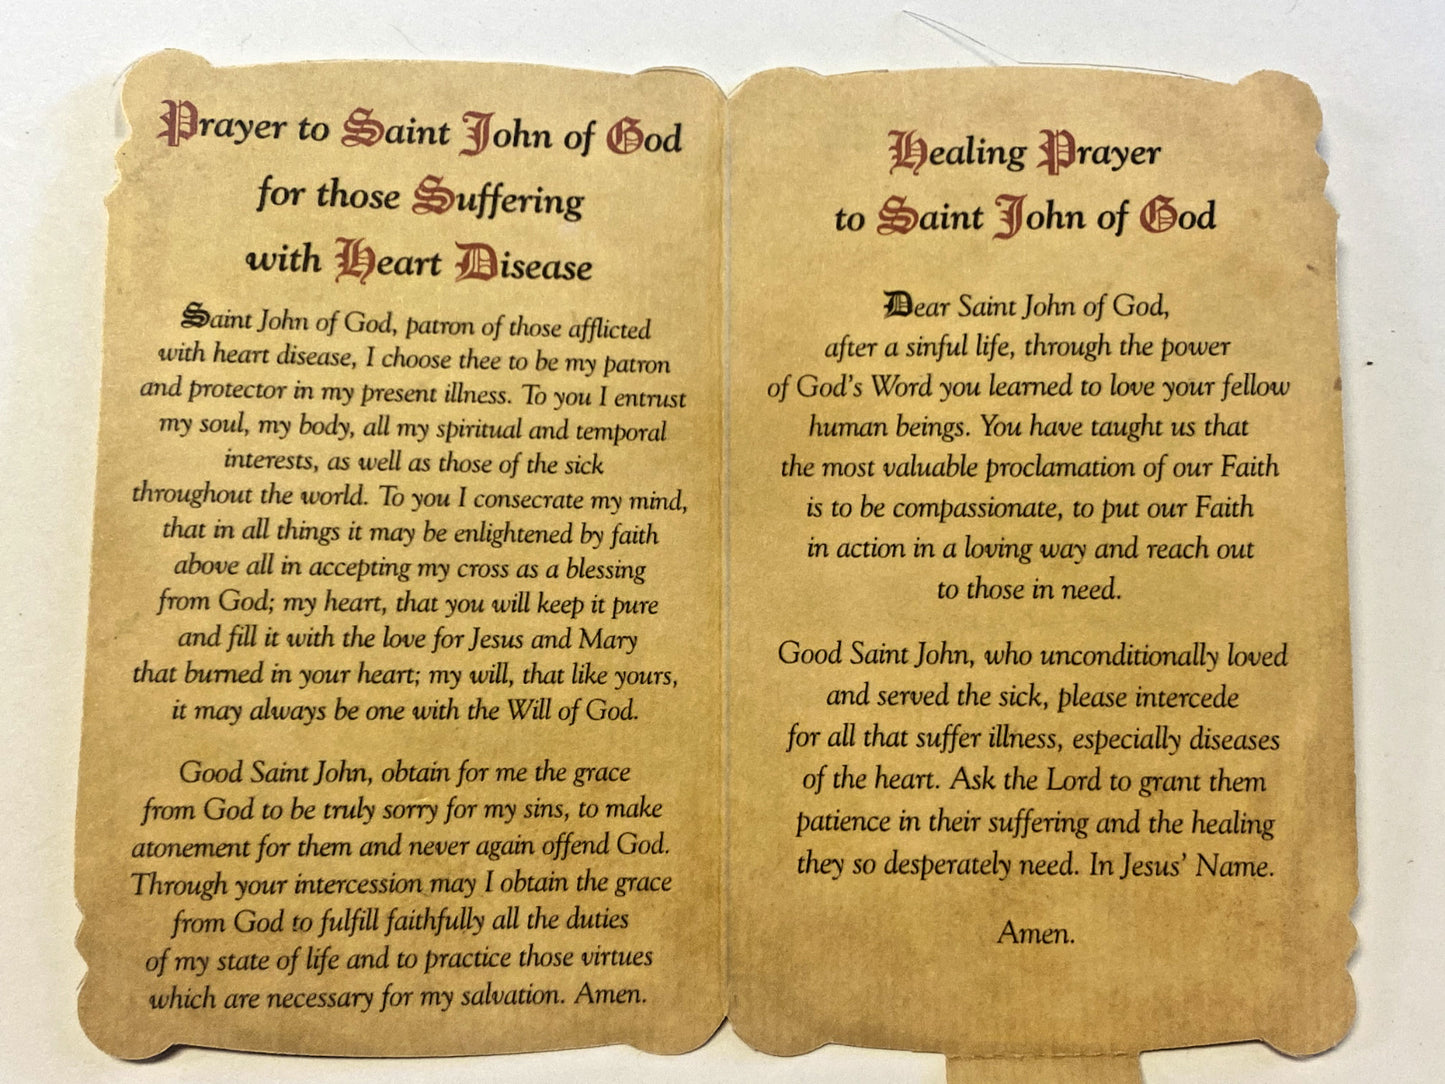 Prayer to Saint John of God
for those Suffering
with Heart Disease
Saint John of God, patron of those afflicted
with heart disease, I choose thee to be my patron
and protector in my present illness. To you I entrust
my soul, my body, all my spiritual and temporal
interests, as well as those of the sick
throughout the world. To you I consecrate my mind,
that in all things it may be enlightened by faith
above all in accepting my cross as a blessing
from God; my heart, that you will keep it pure
and fill it with the love for Jesus and Mary
that burned in your heart; my will, that like yours,
it may always be one with the Will of God.
Good Saint John, obtain for me the grace
from God to be truly sorry for my sins, to make
atonement for them and never again offend God.
Through your intercession may I obtain the grace
from God to fulfill faithfully all the duties
of my state of life and to practice those virtues
which are necessary for my salvation. Amen.
Healing Prayer
to Saint John of God
Dear Saint John of God,
after a sinful life, through the power
of God's Word you learned to love your fellow
human beings. You have taught us that
the most valuable proclamation of our Faith
is to be compassionate, to put our Faith
in action in a loving way and reach out
to those in need.
Good Saint John, who unconditionally loved
and served the sick, please intercede
for all that suffer illness, especially diseases
of the heart. Ask the Lord to grant them
patience in their suffering and the healing
they so desperately need. In Jesus' Name.
Amen.